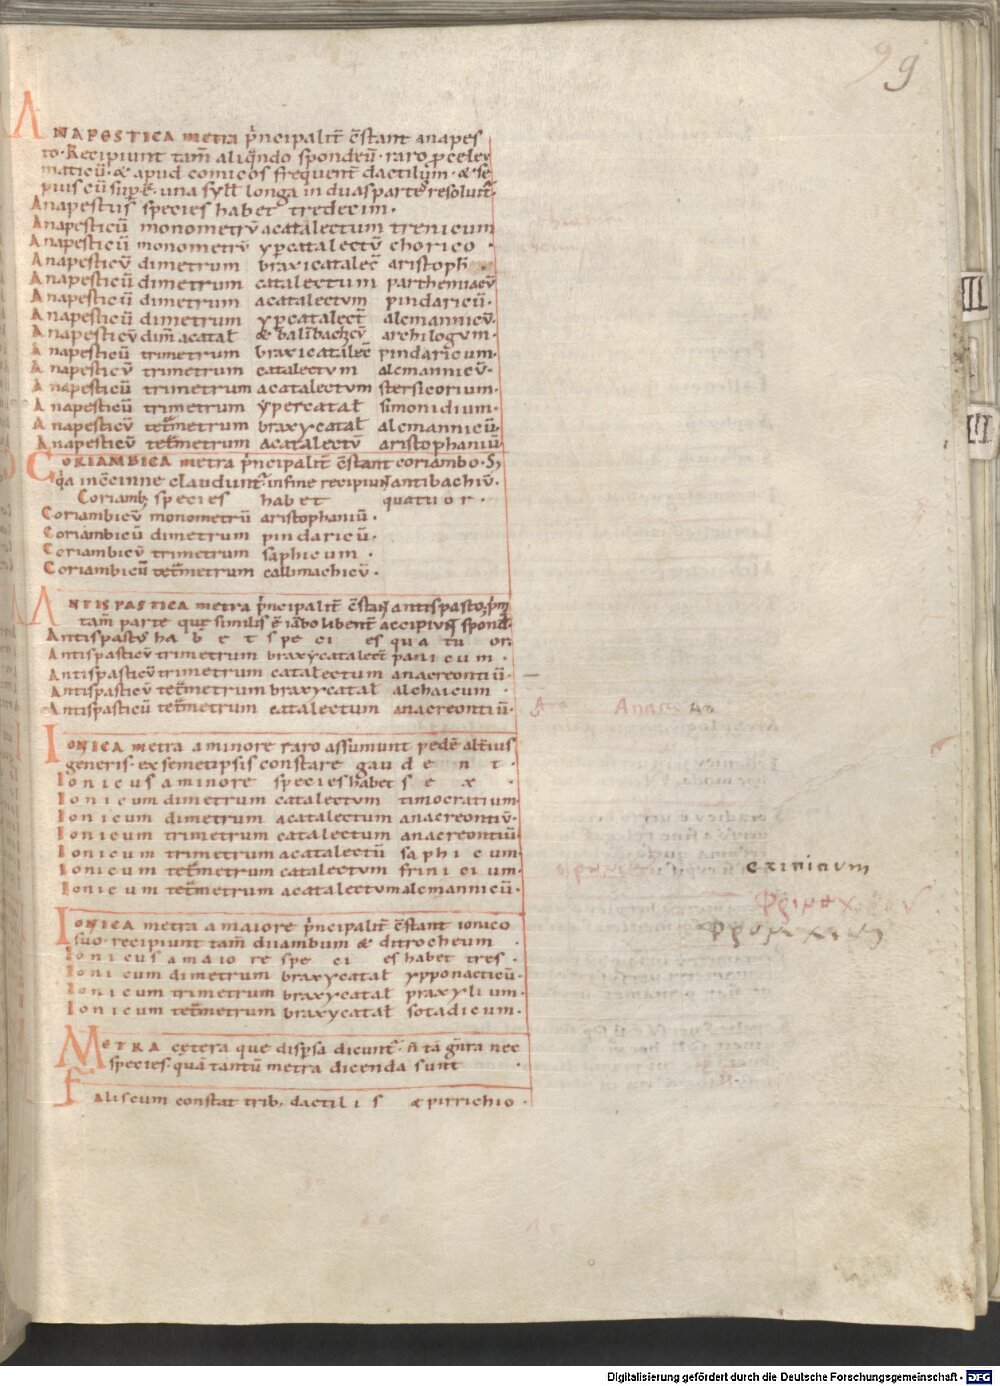 99
ANAPESTICA metra p̄ncipalit̄ c̄stant anapes
to. Recipiunt tam̄ aliq̄ndo spondeū. raro proceleu
maticū. & apud comicos frequent̄ dactilum. & se
pius cū sup̄. una syll̄ longa in duas partes resoluit̄.
Anapestus species habet tredecim.
Anapesticū monometrū acatalectum trenicum
Anapesticū monometrū ypcatalectū chorico .
Anapesticū dimetrum braxicatalec̄ aristoph̄
Anapesticū dimetrum catalectum parthemiacū
Anapesticū dimetrum acatalectum pindaricū.
Anapesticū dimetrum ypcatalect̄ alcmannicū.
Anapesticū dim̄ acatal̄ & archilogum.
Anapesticū trimetrum braxicatalec̄ pindaricum.
Anapesticū trimetrum catalectum alcmannicū.
Anapesticū trimetrum acatalectum stersicorium.
Anapesticū trimetrum ypercatal̄ simonidium.
Anapesticū tet̄metrum braxycatal̄ alcmannicū.
Anapesticū tet̄metrum acatalectū aristophaniū
CORIAMBICA metra p̄ncipalit̄ c̄stant coriambo. S;
q̄a inc̄cinne claudunt̄ in fine recipiun̄ antibachiū.
Coriamb; species habet quatuor.
Coriambicū monometrū aristophaniū.
Coriambicū dimetrum pindaricū.
Coriambicū trimetrum saphicum.
Coriambicū tet̄metrum callimachicū.
ANTISPASTICA metra p̄ncipalit̄ c̄stan̄ antispasto; p̄m
tam̄ parte que similis ē iābo libent̄ accipiun̄ spond̄
Antispastus habet species quatuor
Antispasticū trimetrum braxycatalect̄ panicum.
Antispasticū trimetrum catalectum anacreontiū.
Antispasticū tet̄metrum braxycatal̄ alchaicum.
Antispasticū tet̄metrum catalectum anacreontiū.
IONICA metra a minore raro assumunt pedē alt̄ius
generis. ex semetipsis constare gaudent.
Ionicus a minore species habet sex.
Ionicum dimetrum catalectum timocratium
Ionicum dimetrum acatalectum anacreontiū.
Ionicum trimetrum catalectum anacreontiū
Ionicum trimetrum acatalectū saphicum
Ionicum tet̄metrum catalectum frinicium.
Ionicum tet̄metrum acatalectum alcmannicū.
criticum
IONICA metra a maiore p̄ncipalit̄ c̄stant ionico
suo. recipiunt tam̄ diiambum & ditrocheum .
Ionicus a maiore species habet tres.
Ionicum dimetrum braxycatal̄ ypponacticū.
Ionicum trimetrum braxycatal̄ praxylium.
Ionicum tet̄metrum braxycatal̄ sotadicum.
METRA cetera que disp̄sa dicunt̄. n̄ tā gn̄ra nec
species. quā tantū metra dicenda sunt .
Faliscum constat trib. dactilis & pirrichio.
Digitalisierung gefördert durch die Deutsche Forschungsgemeinschaft - DFG